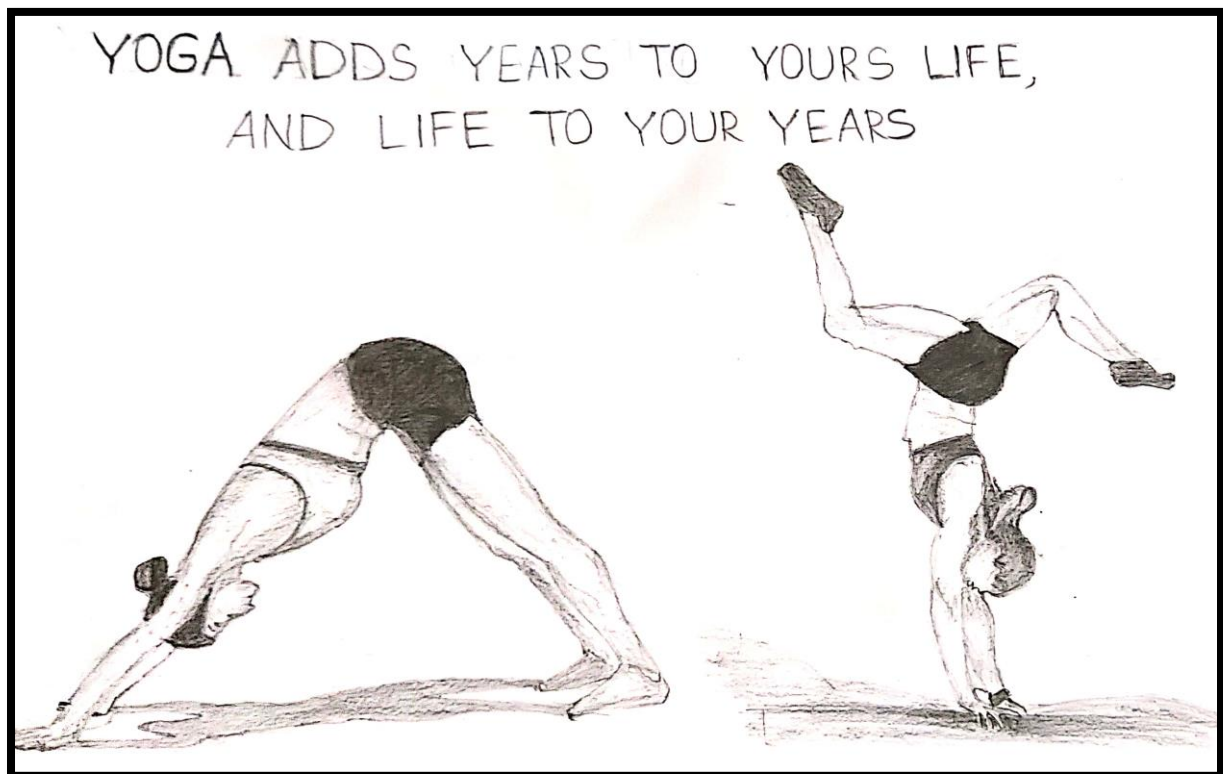 YOGA ADDS YEARS TO YOURS LIFE,
AND LIFE TO YOUR YEARS